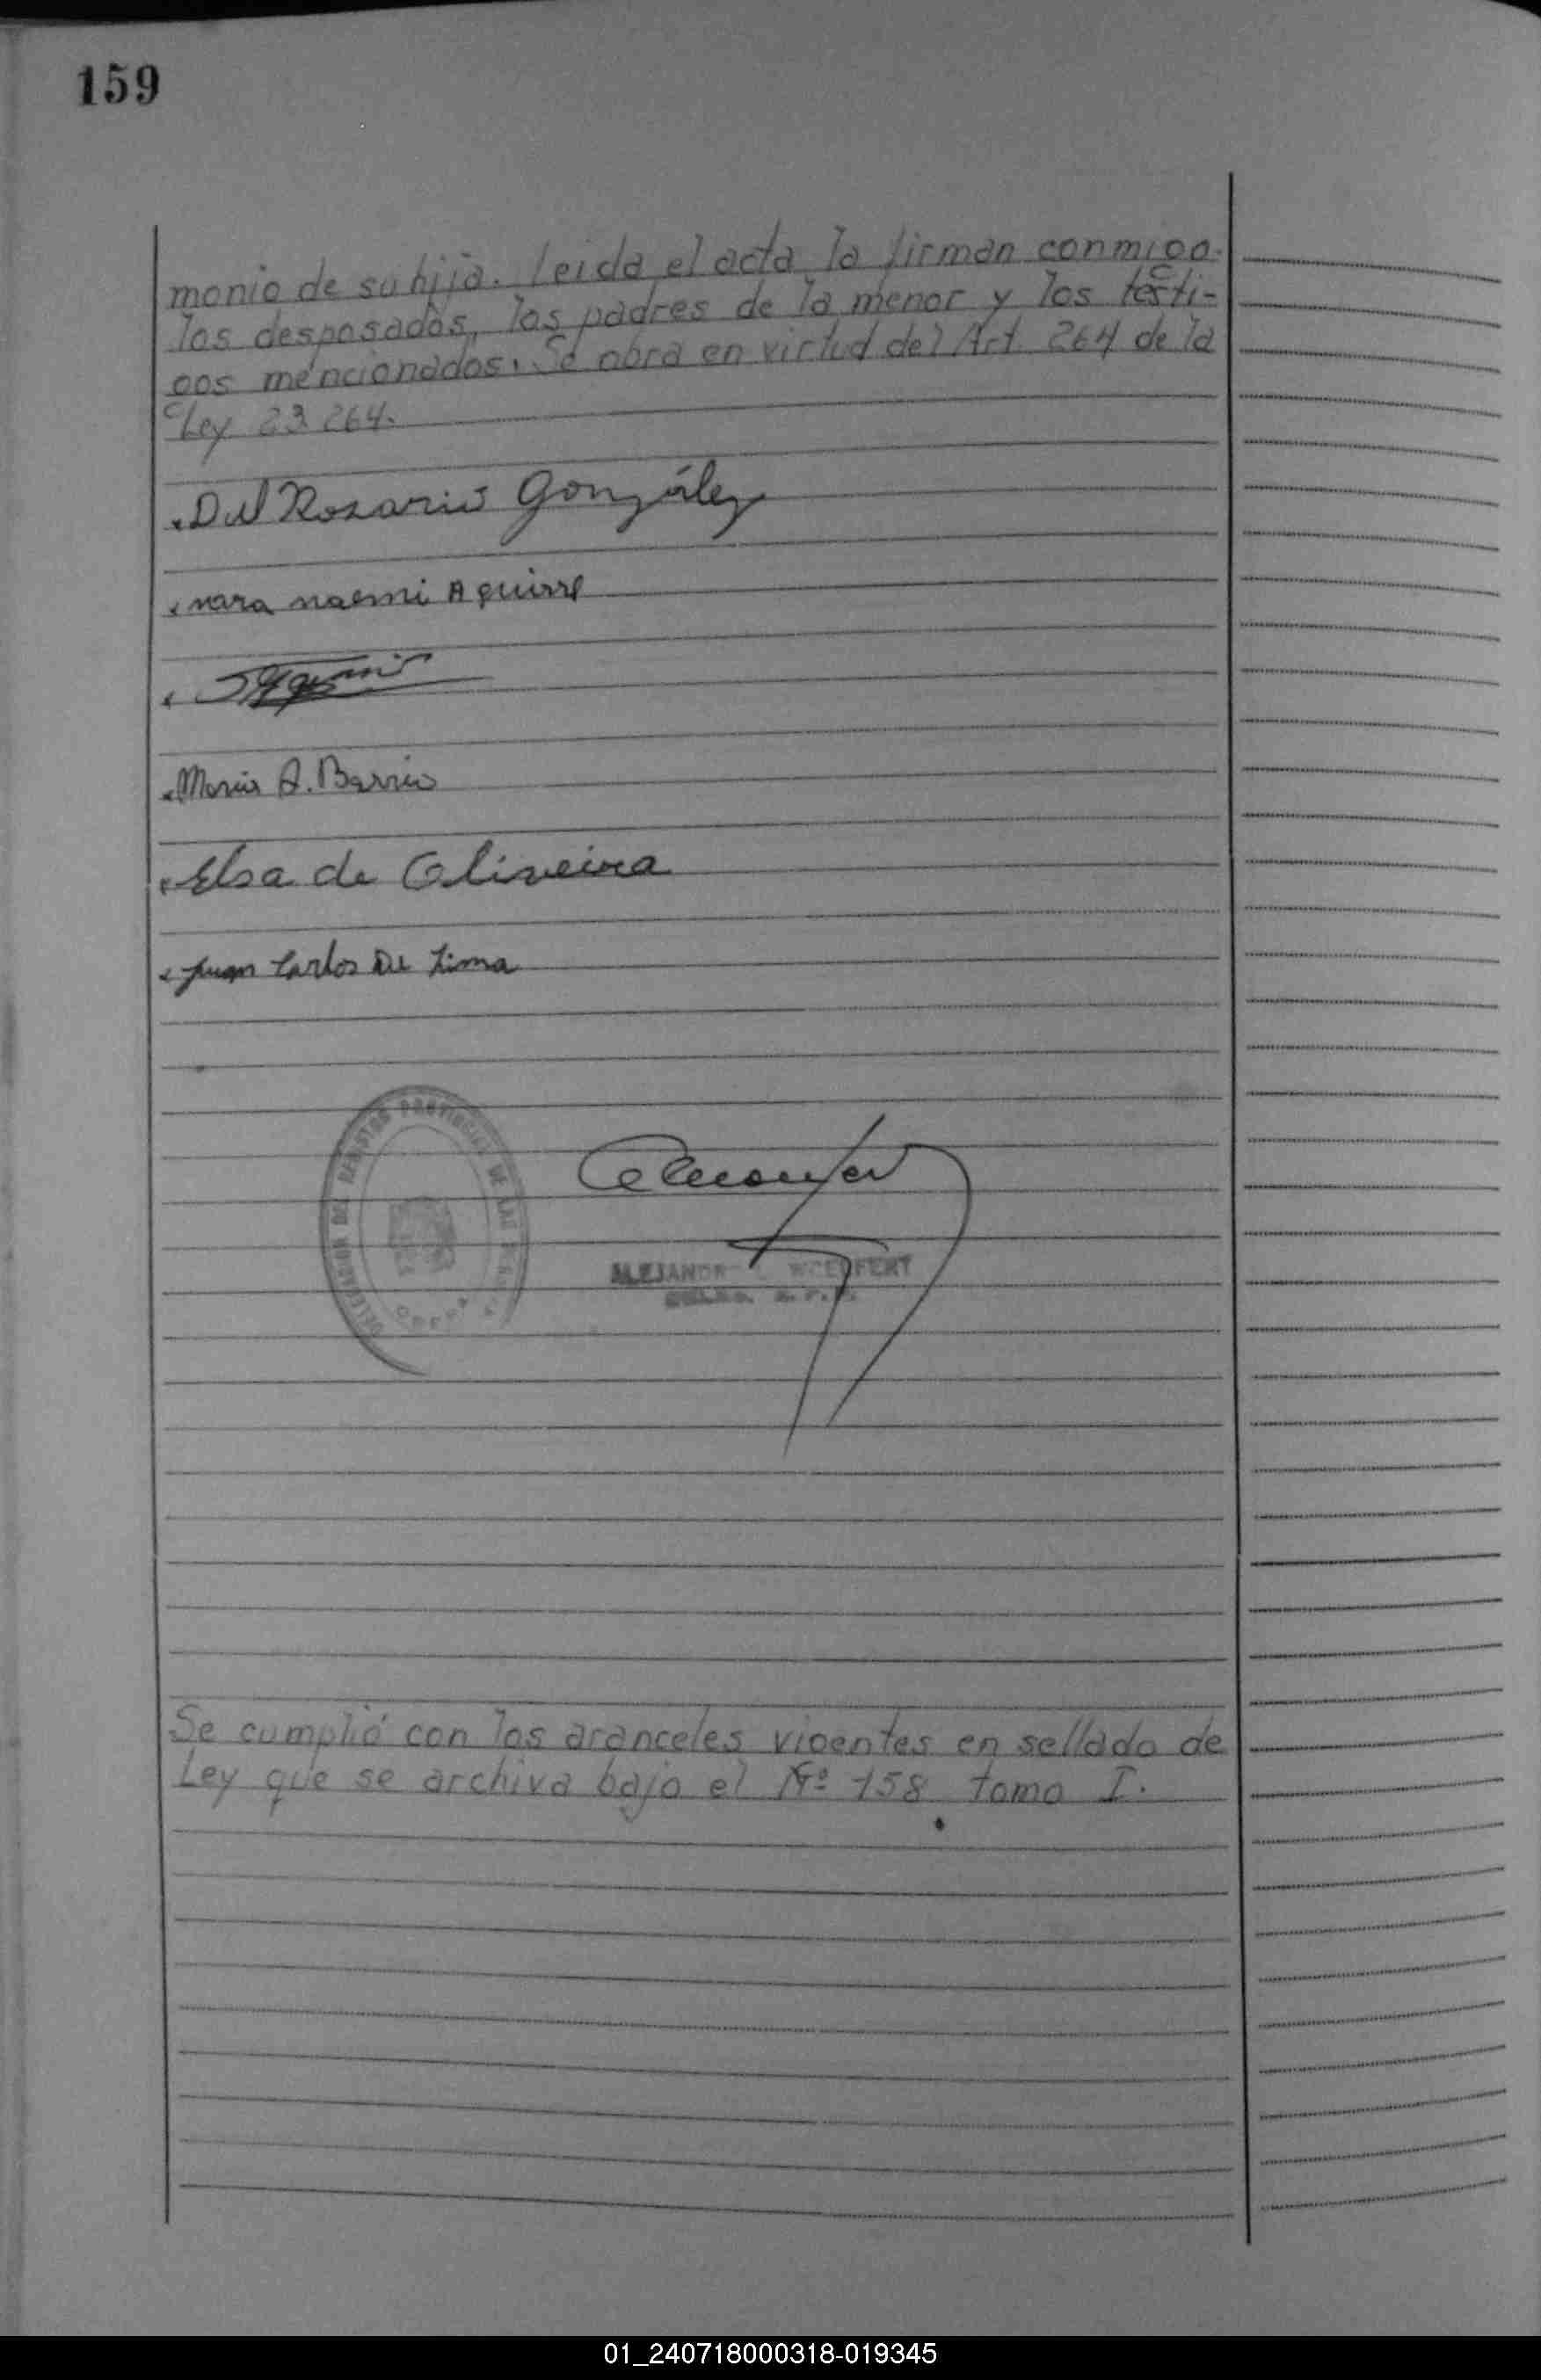 159
monio de su hija. Leida el acta la firman conmigo.
los desposados, los padres de la menor y los testi-
gos mencionados. Se obra en virtud del Art. 264 de la
Ley 23 264.
Del Rosario González
nara naemi Aguirre
Maria A. Barrio
Elsa de Oliveira
Juan Carlos De Lima
DELEGACION DEL REGISTRO PROVINCIAL DE LAS PERSONAS
ALEJANDR
Se cumplió con los aranceles vigentes en sellado de
Ley que se archiva bajo el Nº 158 tomo I.
01_240718000318-019345